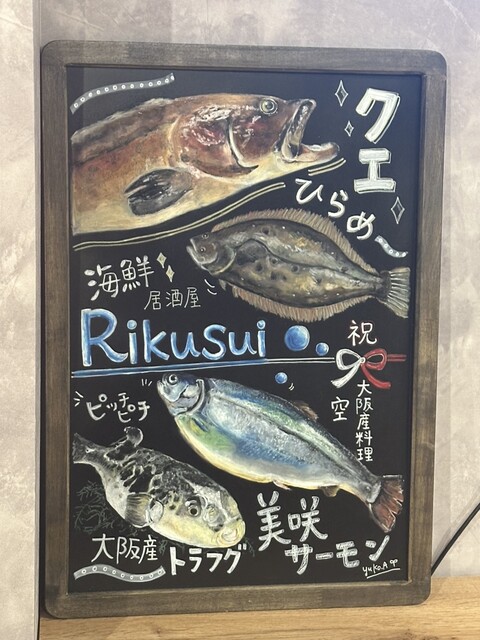 クエ
ひらめ〜
海鮮
居酒屋
Rikusui
祝
空
大阪産料理
ピッチピチ
美咲
サーモン
大阪産
トラフグ
yuko.A